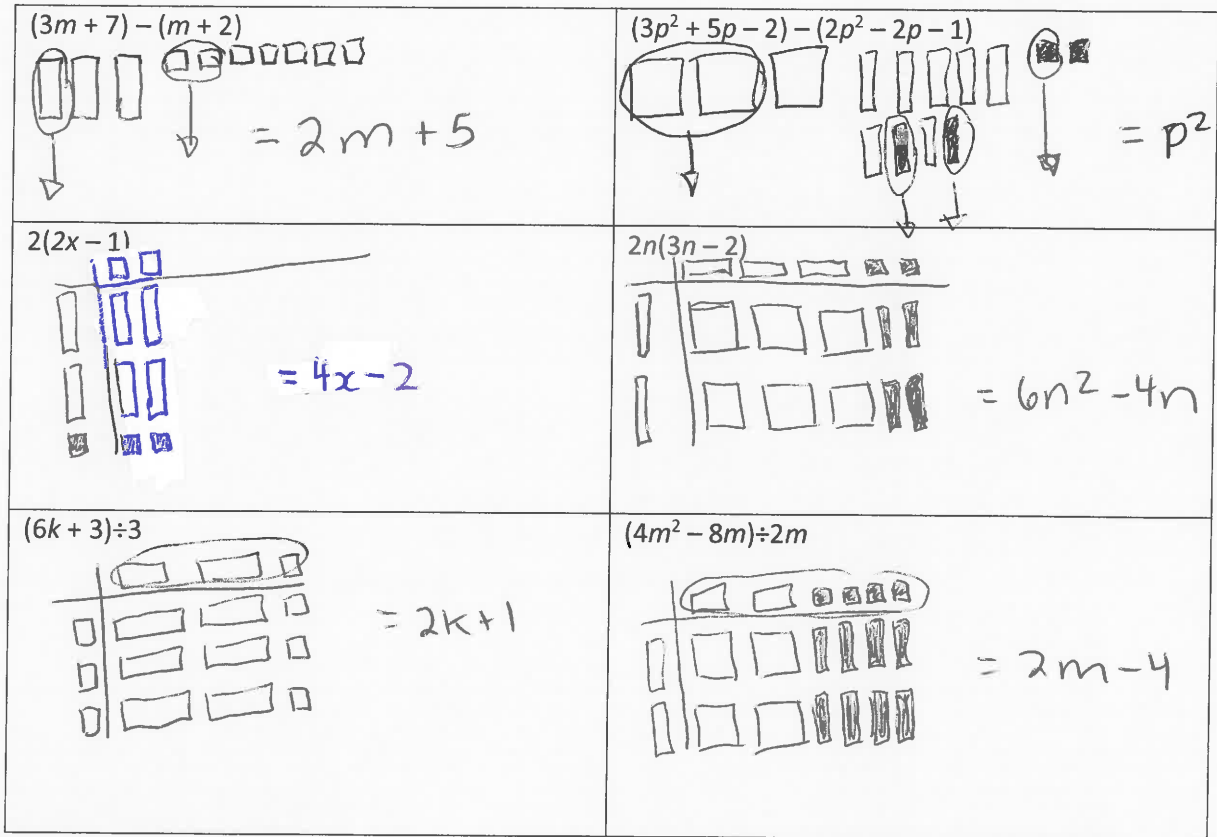 (3m + 7) – (m + 2)
= 2m + 5
(3p² + 5p – 2) – (2p² – 2p – 1)
= p²
2(2x – 1)
= 4x – 2
2n(3n – 2)
= 6n² – 4n
(6k + 3)÷3
= 2k + 1
(4m² – 8m)÷2m
= 2m – 4